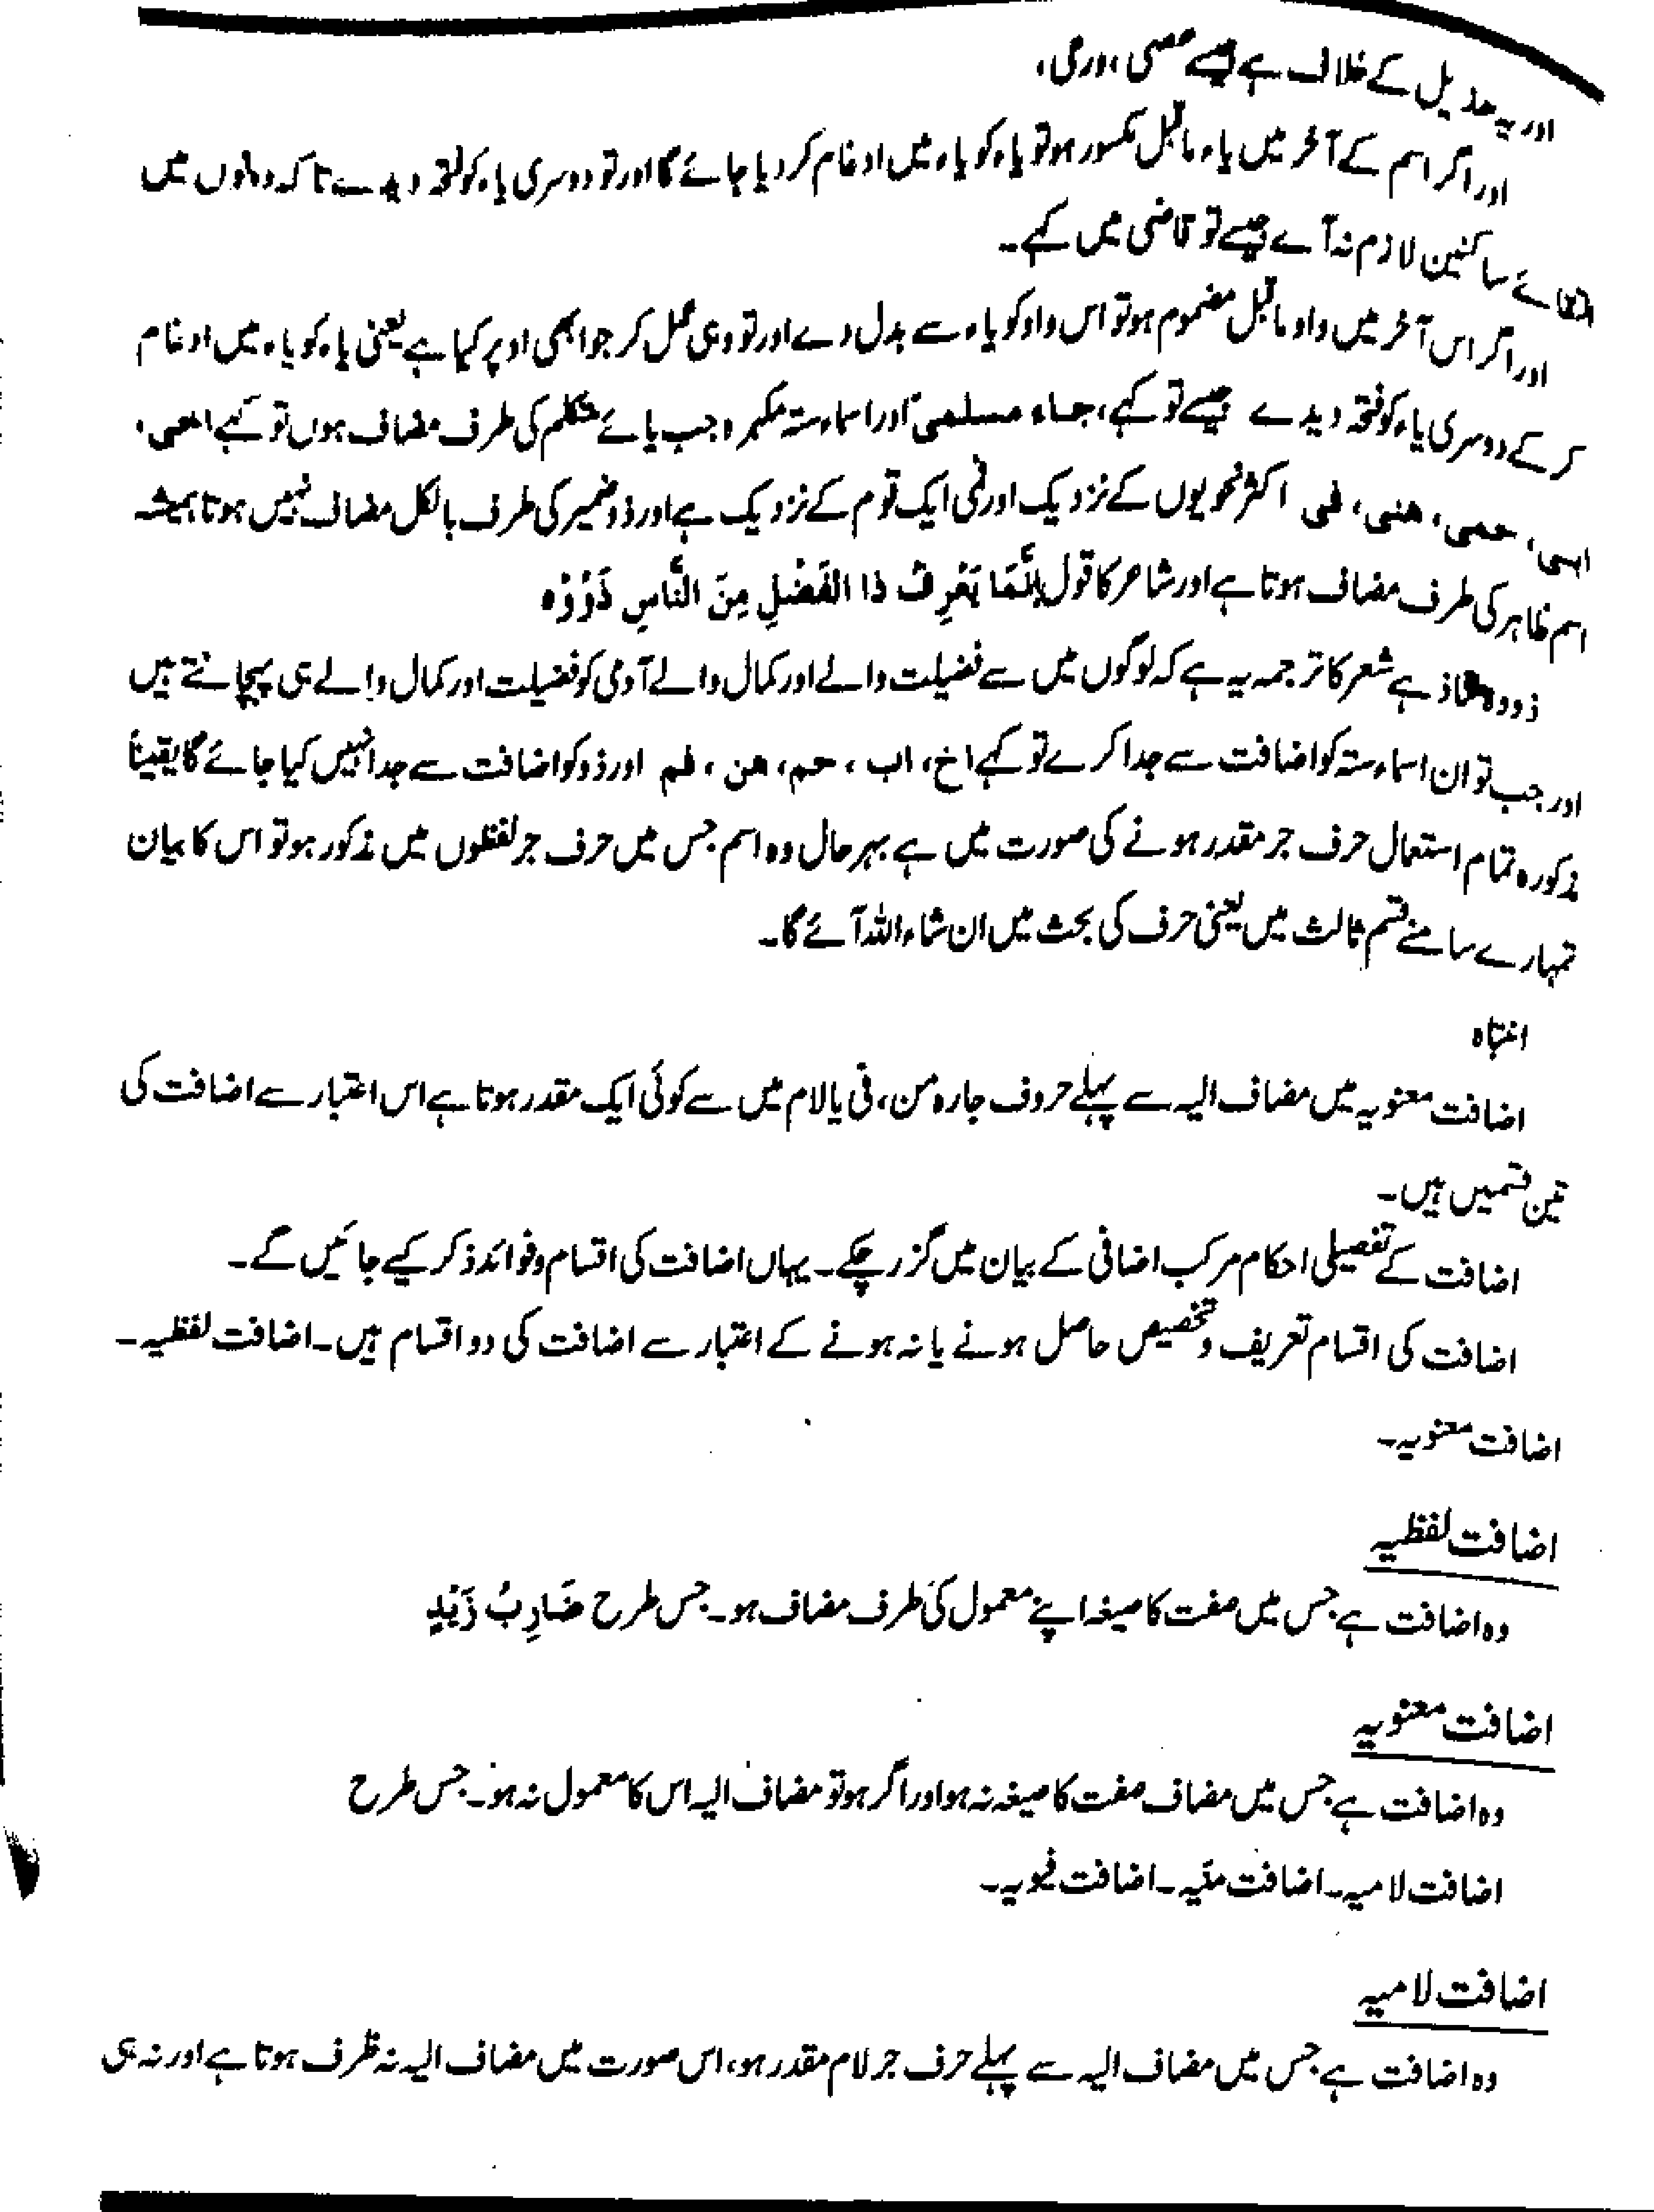 اور یہ ھذیل کے خلاف ہے جیسے عصی، ورحی،
اور اگر اسم کے آخر میں یاء ماقبل مکسور ہو تو یاء کو یاء میں ادغام کر دیا جائے گا اور تو دوسری یاء کو فتحہ دیدے تا کہ دونوں میں
التقائے ساکنین لازم نہ آئے جیسے تو قاضی میں کہے۔
اور اگر اس آخر میں واو ماقبل مضموم ہو تو اس واو کو یاء سے بدل دے اور تو وہی عمل کر جو ابھی اوپر کیا ہے یعنی یاء کو یاء میں ادغام
کر کے دوسری یاء کو فتحہ دیدے جیسے تو کہے، جاء مسلمی اور اسماء ستہ مکبرہ جب یائے متکلم کی طرف مضاف ہوں تو کہے اخی،
ابی، حمی، ھنی، فی اکثر نحویوں کے نزدیک اور فمی ایک قوم کے نزدیک ہے اور ذو ضمیر کی طرف بالکل مضاف نہیں ہوتا ہمیشہ
اسم ظاہر کی طرف مضاف ہوتا ہے اور شاعر کا قول إِنَّمَا یَعْرِفُ ذَا الفَضْلِ مِنَ النَّاسِ ذَوُوْہ
ذووہ شاذ ہے شعر کا ترجمہ یہ ہے کہ لوگوں میں سے فضیلت والے اور کمال والے آدمی کو فضیلت اور کمال والے ہی پہچانتے ہیں
اور جب تو ان اسماء ستہ کو اضافت سے جدا کرے تو کہے اخ، اب، حم، ھن، فم اور ذو کو اضافت سے جدا نہیں کیا جائے گا یقیناً
مذکورہ تمام استعمال حرف جر مقدر ہونے کی صورت میں ہے بہر حال وہ اسم جس میں حرف جر لفظوں میں مذکور ہو تو اس کا بیان
تمہارے سامنے قسم ثالث میں یعنی حرف کی بحث میں ان شاء اللہ آئے گا۔
انتباہ
اضافت معنویہ میں مضاف الیہ سے پہلے حروف جارہ من، فی یا لام میں سے کوئی ایک مقدر ہوتا ہے اس اعتبار سے اضافت کی
تین قسمیں ہیں۔
اضافت کے تفصیلی احکام مرکب اضافی کے بیان میں گزر چکے۔ یہاں اضافت کی اقسام و فوائد ذکر کیے جائیں گے۔
اضافت کی اقسام تعریف و تخصیص حاصل ہونے یا نہ ہونے کے اعتبار سے اضافت کی دو اقسام ہیں۔ اضافت لفظیہ۔
اضافت معنویہ۔
اضافت لفظیہ
وہ اضافت ہے جس میں صفت کا صیغہ اپنے معمول کی طرف مضاف ہو۔ جس طرح ضَارِبُ زَیْدٍ
اضافت معنویہ
وہ اضافت ہے جس میں مضاف صفت کا صیغہ نہ ہو اور اگر ہو تو مضاف الیہ اس کا معمول نہ ہو۔ جس طرح
اضافت لامیہ۔ اضافت منیہ۔ اضافت فیویہ۔
اضافت لامیہ
وہ اضافت ہے جس میں مضاف الیہ سے پہلے حرف جر لام مقدر ہو، اس صورت میں مضاف الیہ نہ ظرف ہوتا ہے اور نہ ہی